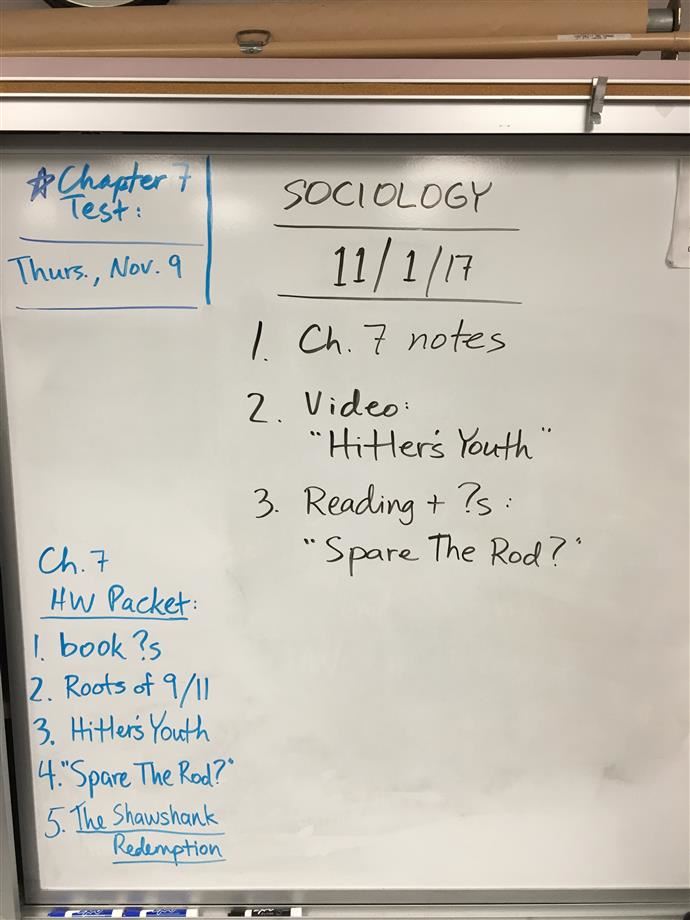 ☆Chapter 7
Test:
Thurs., Nov. 9
SOCIOLOGY
11/1/17
1. Ch. 7 notes
2. Video:
"Hitler's Youth"
3. Reading + ?s:
"Spare The Rod?"
Ch. 7
HW Packet:
1. book ?s
2. Roots of 9/11
3. Hitler's Youth
4. "Spare The Rod?"
5. The Shawshank
Redemption